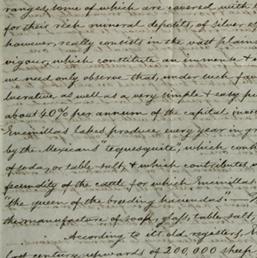 ranges, some of which are covered with
for their rich mineral deposits, of silver,
however, really consists in the vast plains
vigour, which constitute an immense &
we need only observe that, under such
lucrative as well as a very simple & easy
about 40% per annum of the capital
Encinillas Lakes produce every year in
by the Mexicans "tequesquite", which
of soda, or table salt, & which contributes
fecundity of the cattle for which Encinillas
"the queen of the breeding haciendas".
the manufacture of soap, glass, table salt,
According to its old registers,
last century, upwards of 200,000 sheep